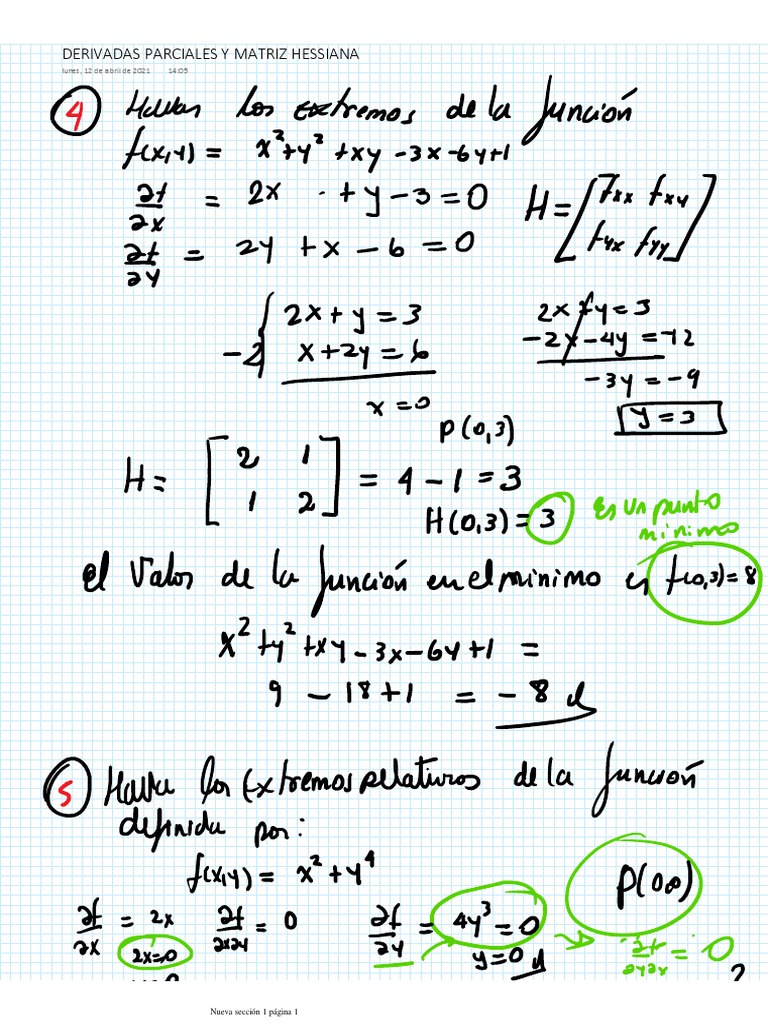 DERIVADAS PARCIALES Y MATRIZ HESSIANA
lunes, 12 de abril de 2021 14:05
4 Hallar los extremos de la función
f(x,y) = x²+y²+xy-3x-6y+1
∂f/∂x = 2x · + y - 3 = 0
H = [fxx fxy
fyx fyy]
∂f/∂y = 2y + x - 6 = 0
2x + y = 3
-2 { x + 2y = 6
x = 0
2x + y = 3
-2x - 4y = -12
-3y = -9
y = 3
P(0,3)
H = [2 1
1 2] = 4 - 1 = 3
H(0,3) = 3
Es un punto
mínimo
el valor de la función en el mínimo es f(0,3)=8
x² + y² + xy - 3x - 6y + 1 =
9 - 18 + 1 = -8
5 Hallar los Extremos relativos de la función
definida por:
f(x,y) = x² + y⁴
P(0,0)
∂f/∂x = 2x ∂f/∂x∂y = 0 ∂f/∂y = 4y³ = 0
2x=0 y=0 ∂f/∂y∂x = 0
2
Nueva sección 1 página 1